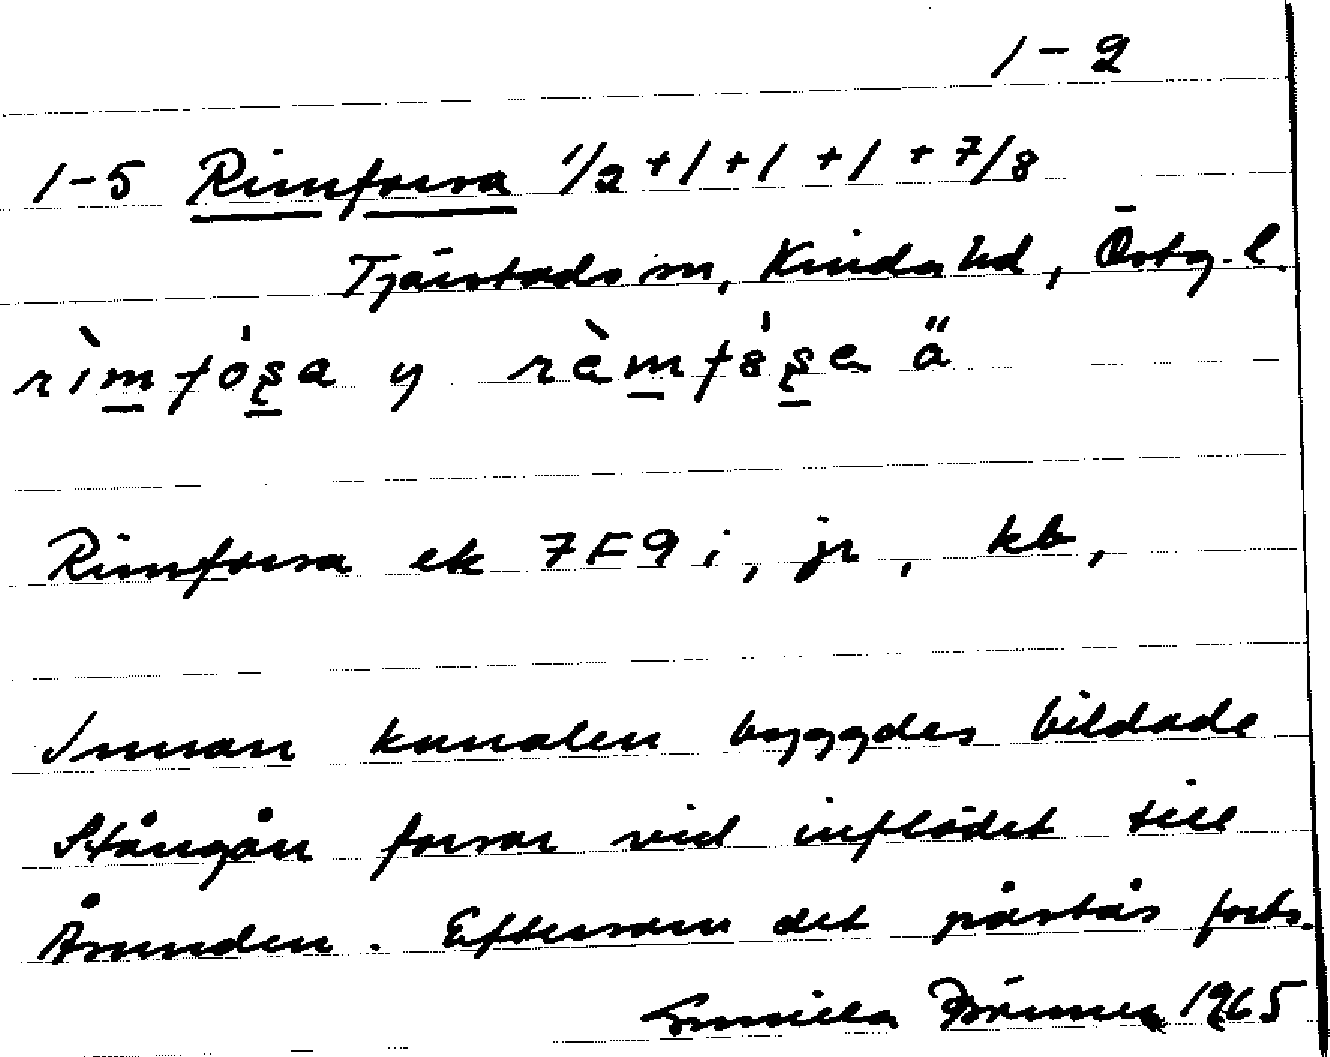 1-2
1-5 Rimforsa 1/2 + 1 + 1 + 1 + 7/8
Tjärstads sn, Kinda hd, Östg. l.
Rimforsa ek 7F9i, jr, kb,
Innan kanalen byggdes bildade
Stångån forsar vid inflödet till
Åsunden. Eftersom det påstås forts.
Gunilla 1965